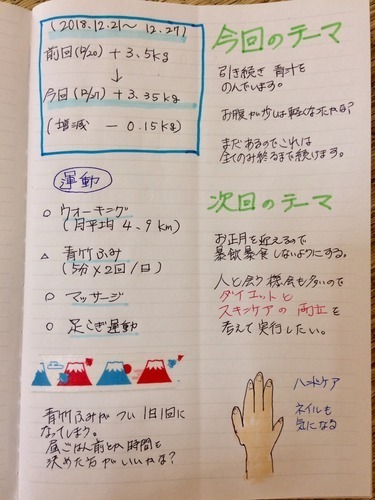 (2018.12.21～12.27)
前回(12/20) + 3.5kg
↓
今回(12/27) + 3.35kg
(増減 － 0.15kg)
運動
○ ウォーキング
(月平均 4.9 km)
△ 青竹ふみ
(5分×2回/日)
○ マッサージ
○ 足こぎ運動
青竹ふみがつい1日1回に
なってしまう。
昼ごはん前とか時間を
決めた方がいいかな？
今回のテーマ
引き続き 青汁を
のんでいます。
お腹が少しは軽くなったかな？
まだあるのでこれは
全てのみ終るまで続けます。
次回のテーマ
お正月を迎えるので
暴飲暴食しないようにする。
人と会う機会も多いので
ダイエットと
スキンケアの両立を
考えて実行したい。
ハンドケア
ネイルも
気になる